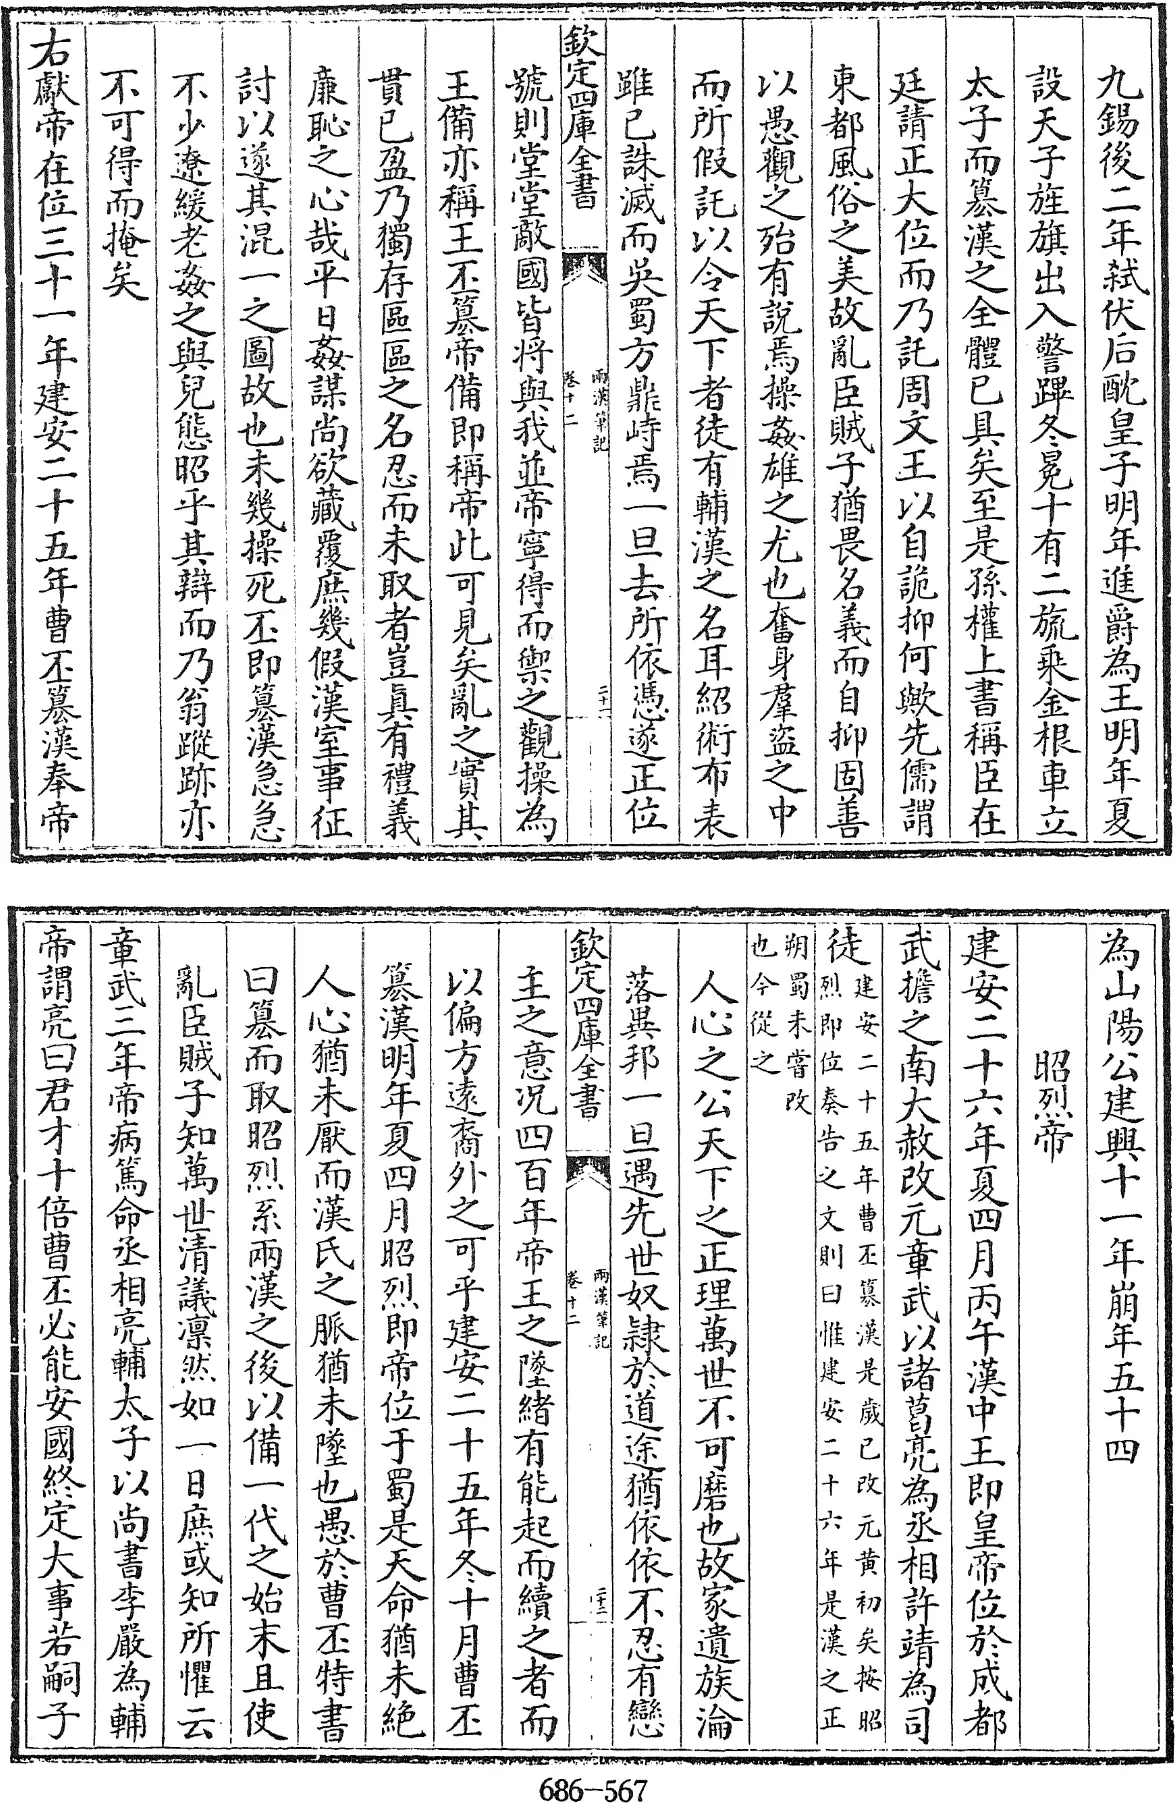 九錫後二年弑伏后酖皇子明年進爵為王明年夏
設天子旌旗出入警蹕冬冕十有二旒乘金根車立
太子而篡漢之全體已具矣至是孫權上書稱臣在
廷請正大位而乃託周文王以自詭抑何歟先儒謂
東都風俗之美故亂臣賊子猶畏名義而自抑固善
以愚觀之殆有説焉操姦雄之尤也奮身羣盜之中
而所假託以令天下者徒有輔漢之名耳紹術布表
雖已誅滅而吳蜀方鼎峙焉一旦去所依憑遂正位
欽定四庫全書
兩漢筆記
卷十二
二十一
號則堂堂敵國皆将與我並帝寧得而禦之觀操為
王備亦稱王丕篡帝備即稱帝此可見矣亂之實其
貫已盈乃獨存區區之名忍而未取者豈真有禮義
廉恥之心哉平日姦謀尚欲藏覆庶幾假漢室事征
討以遂其混一之圖故也未幾操死丕即篡漢急急
不少遼緩老姦之與兒態昭乎其辯而乃翁蹤跡亦
不可得而掩矣
右獻帝在位三十一年建安二十五年曹丕篡漢奉帝
為山陽公建興十一年崩年五十四
昭烈帝
建安二十六年夏四月丙午漢中王即皇帝位於成都
武擔之南大赦改元章武以諸葛亮為丞相許靖為司
徒
建安二十五年曹丕篡漢是歲已改元黄初矣按昭
烈即位奏告之文則曰惟建安二十六年是漢之正
朔蜀未嘗改
也今從之
人心之公天下之正理萬世不可磨也故家遺族淪
落異邦一旦遇先世奴隷於道途猶依依不忍有戀
欽定四庫全書
兩漢筆記
卷十二
二十二
主之意况四百年帝王之墜緒有能起而續之者而
以偏方遠裔外之可乎建安二十五年冬十月曹丕
篡漢明年夏四月昭烈即帝位于蜀是天命猶未絶
人心猶未厭而漢氏之脈猶未墜也愚於曹丕特書
曰篡而取昭烈系兩漢之後以備一代之始末且使
亂臣賊子知萬世清議凛然如一日庶或知所懼云
章武三年帝病篤命丞相亮輔太子以尚書李嚴為輔
帝謂亮曰君才十倍曹丕必能安國終定大事若嗣子
686-567